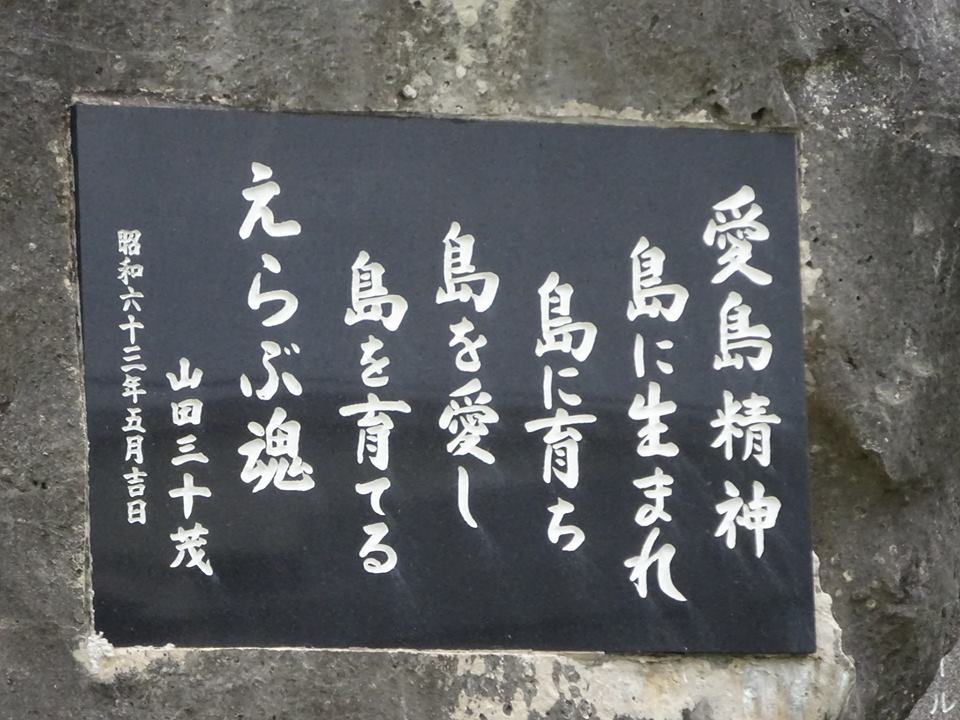 愛島精神
島に生まれ
島に育ち
島を愛し
島を育てる
えらぶ魂
山田三十茂
昭和六十三年五月吉日
ル